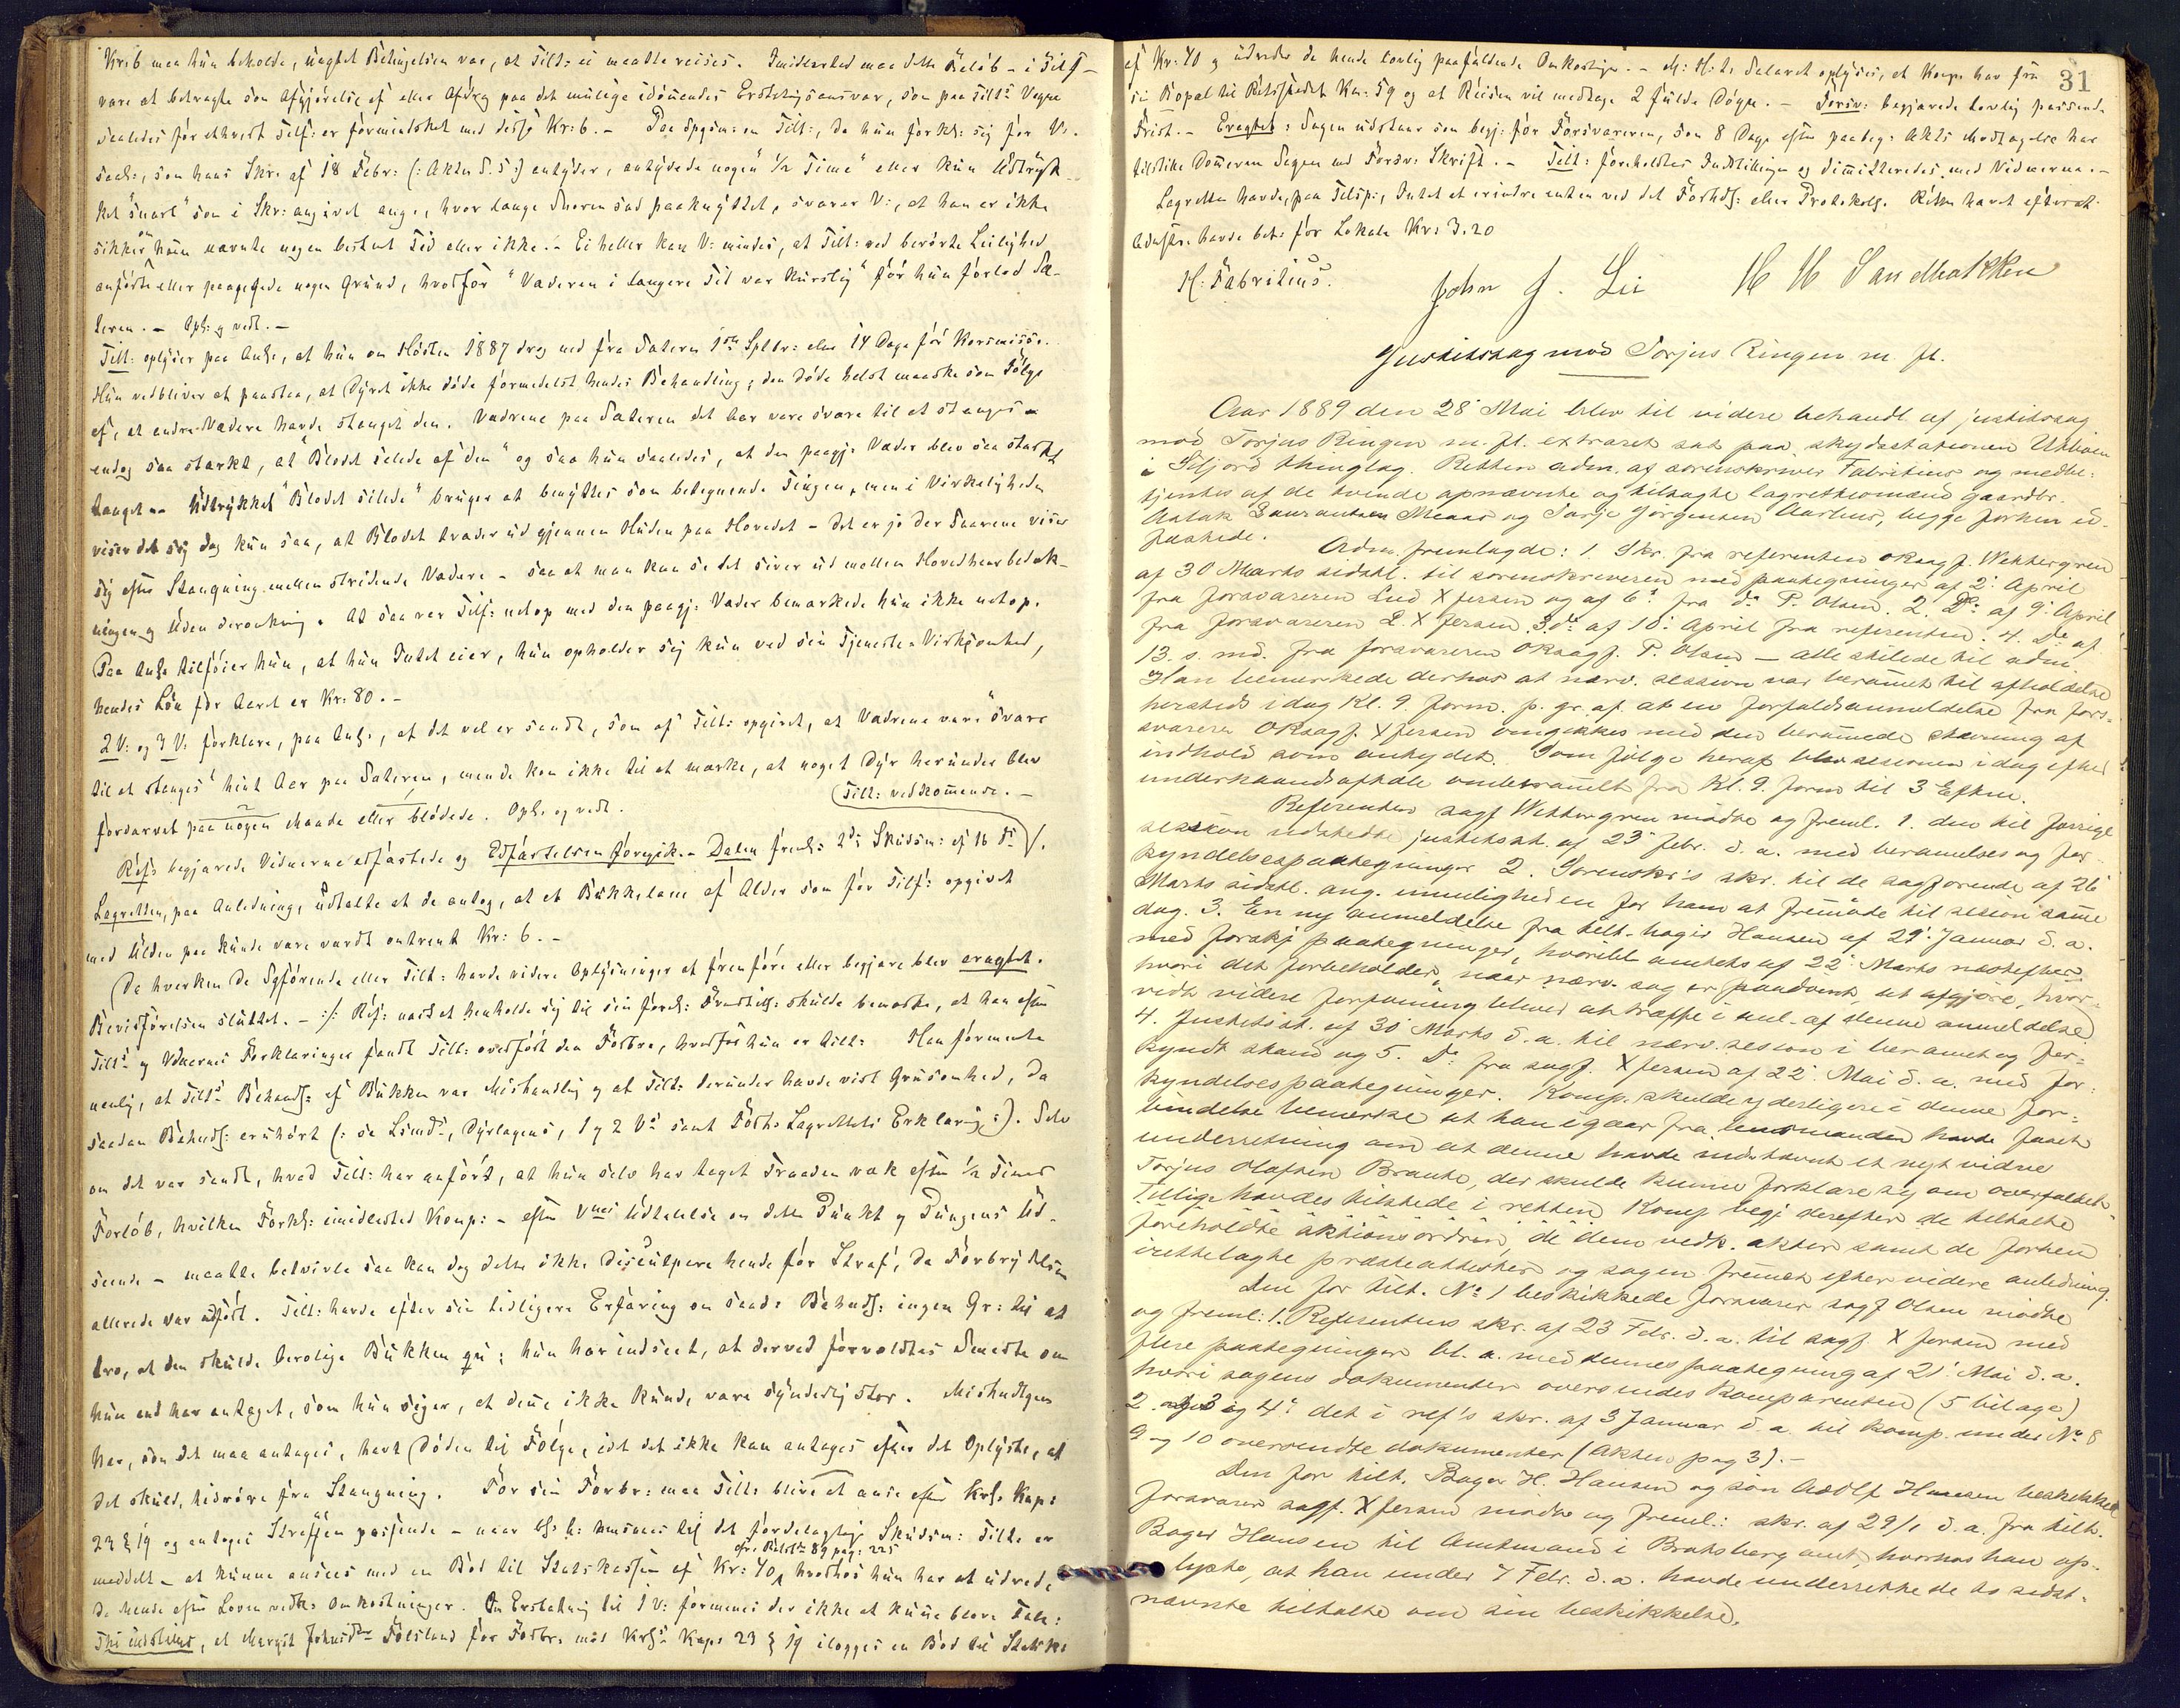 Kr: 6 maa hun beholde, uagtet Betingelsen var, at Tilt: ei maatte reises. Imidlertid maa dette Beløb - i Tilf -
være at betragte som Afgjørelse af eller Afdrag paa det mulige idømmendes Erstatningsansvar, som paa Tilts Vegne
saaledes for ethvert Tilf: er formindsket med disse Kr: 6. - Paa Spgsm: om Tilt:, da hun forkl: sig for V:
saal:, som hans Skr: af 18 Febr: (: Akten S. 5 :) antyder, antydede nogen "½ Time" eller kun Udtryk-
ket "snart" som i Skr: angivet ang:, hvor længe Snoren sad paaknyttet, svarer V:, at han er ikke
sikker om hun nævnte nogen bestemt Tid eller ikke. - Ei heller kan V: mindes, at Tilt: ved berørte Leilighed
anførte eller paapegede nogen Grund, hvorfor "Væderen i længere Tid var kurstig" før hun forlod Sæ-
teren. - Opl: og vedt. -
Tilt: oplyser paa Anl:, at hun om Høsten 1887 drog ned fra Sæteren 1ste Septbr: eller 14 Dage før Korsmisse.
Hun vedbliver at paastaa, at Dyret ikke døde formedelst hendes Behandling; den døde helst maaske som Følge
af, at andre Vædere havde stanget den. Vædrene paa Sæteren det Aar vare svære til at stanges
endog saa stærkt, at "Blodet silede af dem" og saa hun saaledes, at den paagj: Væder blev saa stærkt
stanget. - Udtrykket "Blodet silede" bruges at benyttes som betegnende Tingen, men i Virkeligheden
viser det sig dog kun saa, at Blodet træder ud gjennem Huden paa Hovedet - det er jo der Saarene viser
sig efter Stangning mellem stridende Vædere - saa at man kan se det siver ud mellem Hovedhaarbedæk-
ningen og Uden deromkring. At saa var Tilf: netop med den paagj: Væder bemærkede hun ikke netop.
Paa Anl: tilføier hun, at hun Intet eier, hun opholder sig kun ved sin Tjeneste-Virksomhed,
hendes Løn for Aaret er Kr: 80. -
2 V: og 3 V: forklare, paa Anl:, at det vel er sandt, som af Tilt: opgivet, at Vædrene vare "svære
til at stanges" hint Aar paa Sæteren, men de kom ikke til at mærke, at noget Dyr herunder blev
fordærvet paa nogen Maade eller blødede. Opl: og vedt. Tilt: vedkommende. -
Refs begjærede Vidnerne edfæstede og Edfæstelsen foregik. - Dalen freml: 2de Skudsm: af 16 ds
Lagretten, paa Anledning, udtalte at de antog, at et Bukkelam af Alder som før Tilf: opgivet
med Ulden paa kunde være værdt omtrent Kr: 6. -
Da hverken de Sagførende eller Tilt: havde videre Oplysninger at fremføre eller begjære blev eragtet.
Bevisførelsen sluttet. - Ref: næst at henholde sig til sin forel: Fremstill: skulde bemærke, at han efter
Tilts og Vidnernes Forklaringer fandt Tilt: overført den Forbr:, hvorfor hun er tilt: Han formente
nemlig, at Tilts Behandl: af Bukken var Mishandling og at Tilt: derunder havde vist Grusomhed, da
saadan Behandl: er uhørt (: se Lsmds, Dyrlægens, 1 og 2 Vs samt Forths Lagrettets Erklæring :). Selv
om det var sandt, hvad Tilt: har anført, at hun selv har taget Traaden væk efter ½ Times
Forløb, hvilken Forkl: imidlertid Komp: - efter Vnes Udtalelse om dette Punkt og Pungens Ud-
seende - maatte betvivle saa kan dog dette ikke disculpere hende for Straf, da Forbrydelsen
allerede var udført. Tilt: havde efter sin tidligere Erfaring om saad: Behndl: ingen Gr: til at
tro, at den skulde berolige Bukken; hun har indseet, at derved forvoldtes Smerte om
hun end har antaget, som hun siger, at denne ikke kunde være synderlig stor. Mishndlgen
har, som det maa antages, havt Døden til Følge, idet det ikke kan antages efter det Oplyste, at
det skuld, hidrøre fra Stangning. For sin Forbr: maa Tilt: blive at anse efter Krl: Kap:
22 § 19 og antoges Straffen passende - naar hensees til det fordelagtige Skudsm: Tilt: er
cfr. Retst: 89 pag: 225
meddelt - at kunne ansees med en Bod til Statskassen af Kr: 40, hvorhos hun har at udrede
de hende efter Loven vedk: Omkostninger. Om Erstatning til 1 V: formenes der ikke at kunne blive Tale:
Thi indstilles, at Margit Johnsdr Følsland for Forbr: mod Krls Kap: 22 § 19 ilægges en Bod til Statsk:
31
af Kr: 40 og udreder de hende lovlig paafaldende Omkostgr. - Salæret oplyses, at Komp: har fra
si Bopæl til Retsstedet Km: 59 og at Reisen vil medtage 2 fulde Døgn. - Forsv: begjærede lovlig passende
Frist. - Eragtet: Sagen udstaar som begj: for Forsvareren, som 8 Dage efter paabeg: Akts Modtagelse har
tilstille Dommeren Sagen med Forsv: Skrift. - Tilt: foreholdtes Indstillingen og dimitteredes med Vidnerne. -
Lagretten havde, paa Tilsp:, Intet at erindre enten ved det Forhdl: eller Protokoll. Retten hævet efterat
Admstr. havde bet: for Lokale Kr: 3.20
H: Fabritius. John J. Lii H H Sandbakken
Justitssag mod Torjus Ringen m. fl.
Aar 1889 den 28' Mai blev til videre behandl. af justitssag
mod Torjus Ringen m. fl. extraret sat paa skydsstationen Utbøen
i Siljord thinglag. Retten adm. af sorenskriver Fabritius og medbe-
tjentes af de tvende opnævnte og tilsagte lagrettesmænd gaardbr.
Aslak Sauransen Meaas og Tarje Jørgensen Aarhus, begge forhen ed-
fæstede.
Adm. fremlagde: 1. Skr. fra referenten oksagf. Wettergren
af 30 Marts sidstl. til sorenskriveren med paategninger af 2' April
fra forsvareren Lud Xfersen og af 6' fra do P. Olsen. 2. Do af 9' April
fra forsvareren L. Xfersen. 3. do af 10' April fra referenten. 4. Do af
13. s. md. fra forsvareren oksagf. P. Olsen - alle stilede til adm.
Han bemerkede derhos at nærv. session var berammet til afholdelse
hersteds idag Kl. 9 form. p. gr. af at en forfaldsanmeldelse fra fors-
svareren oksagf. Xfersen omgikkes med den berammede stævning af
indhold som antydet. Som følge heraf blev sessionen idag efter
underhaandsaftale ombrammelt fra Kl. 9 form til 3 Eftm.
Referenten sagf Wettergren mødte og freml. 1. den til forrige
session udstedte justitsst. af 23' febr. d. a. med berammelses og for-
kyndelsespaategninger 2. Sorenskr's skr. til de sagførende af 26'
Marts sidstl. ang. umuligheden for ham at fremøde til session samme
dag. 3. En ny anmeldelse fra tilt. bager Hansen af 29' Januar d. a.
med forskj paategninger, hvoriblt amtets af 22' Marts næstefter
hvori det forbeholder, naar nærv. sag er paadømt, at afgjøre, hvor-
vidt videre forføining bliver at træffe i anl. af denne anmeldelse
4. Justitsst. af 30' Marts d. a. til nærv. session i berammet og for-
kyndt stand og 5. Do fra sagf. Xfersen af 22' Mai d. a. med for-
kyndelsespaategninger. Komp. skulde yderligere i denne for-
bindelse bemerke at han igaar fra lensmanden havde faaet
underretning om at denne havde indstævnt et nyt vidne
Torjus Olafsen Brauto, der skulde kunne forklare sig om overfaldet
Tillige havdes tilstede i retten. Komp begj derefter de tiltalte
foreholdte aktionsordren, de dem vedk. akter samt de forhen
irettelagte præsteattester og sagen fremet efter videre anledning.
Den for tilt. No 1 beskikkede forsvarer sagf Olsen mødte
og freml: 1. Referentens skr. af 23 Febr. d. a. til sagf. Xfersen med
flere paategninger bl. a. med dennes paategning af 21' Mai d. a.
hvori sagens dokumenter oversendes komparenten (5 bilage)
2. 3 og 4' det i ref's skr. af 3 Januar d. a. til komp. under No 8
9 og 10 oversendte dokumenter (akten pag 3). -
Den for tilt. Bager H. Hansen og søn Adolf Hansen beskikkede
forsvarer sagf. Xfersen mødte og freml.: skr. af 29/1 d. a. fra tilt.
Bager Hansen til Amtmand i Bratsberg amt, hvorhos han op-
lyste, at han under 7 Febr. d. a. havde underrettede to sidst-
nævnte tiltalte om sin beskikkelse.